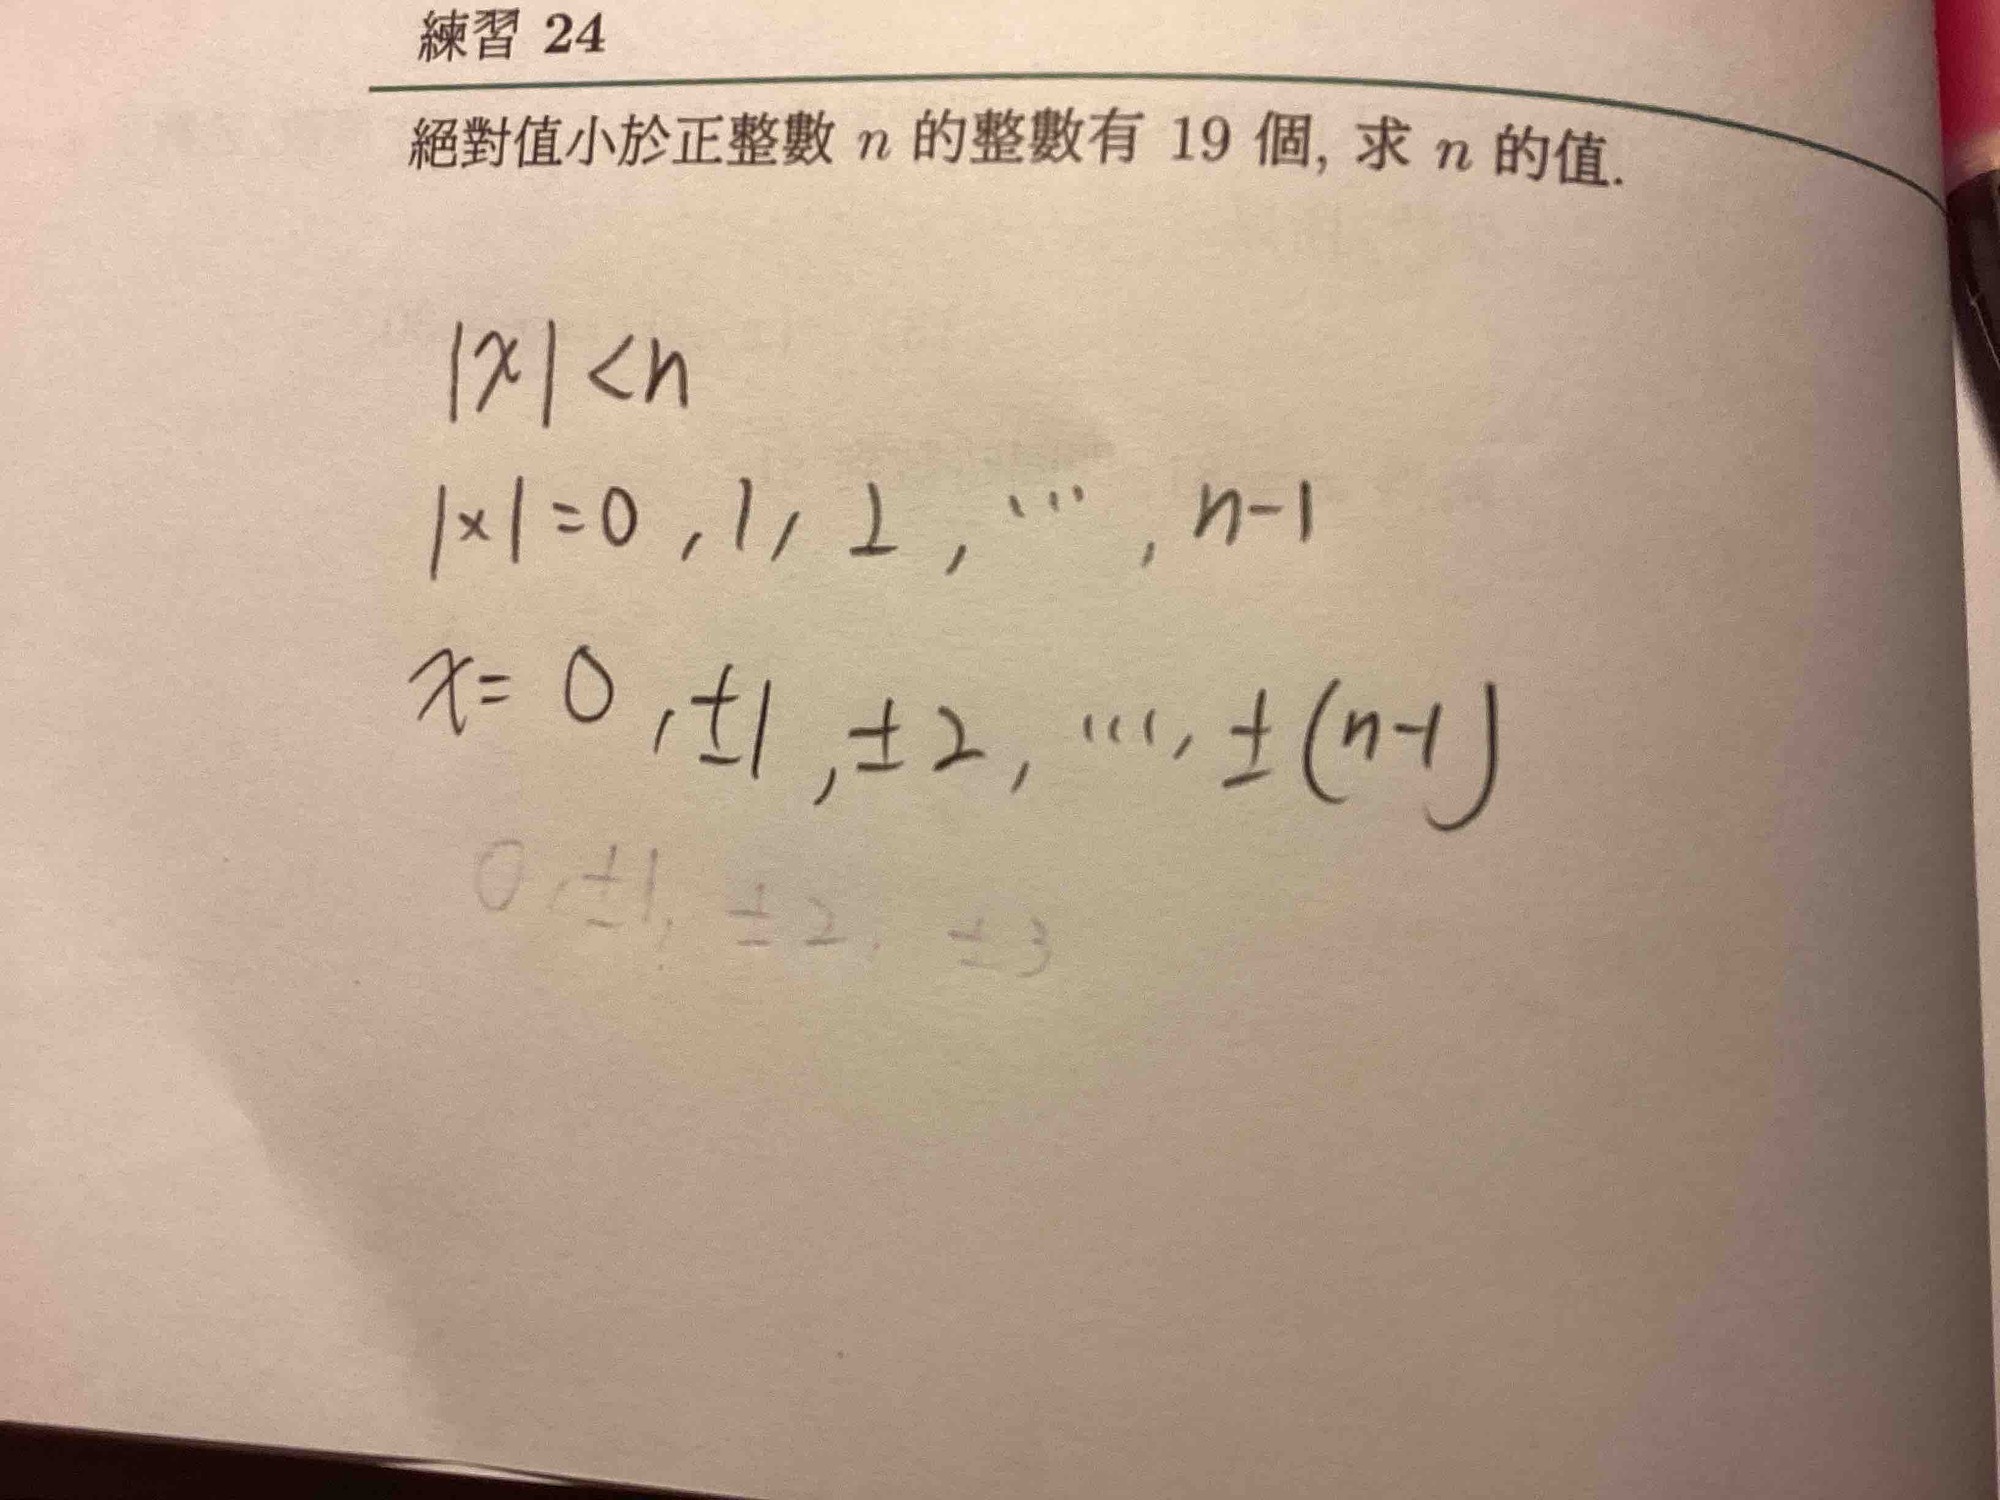 練習 24
絕對值小於正整數 n 的整數有 19 個, 求 n 的值.
|x| <n
|x|=0 , 1 , 2 , ... , n-1
x= 0 , ±1 , ±2 , ... , ±(n-1)
0, ±1, ±2, ±3